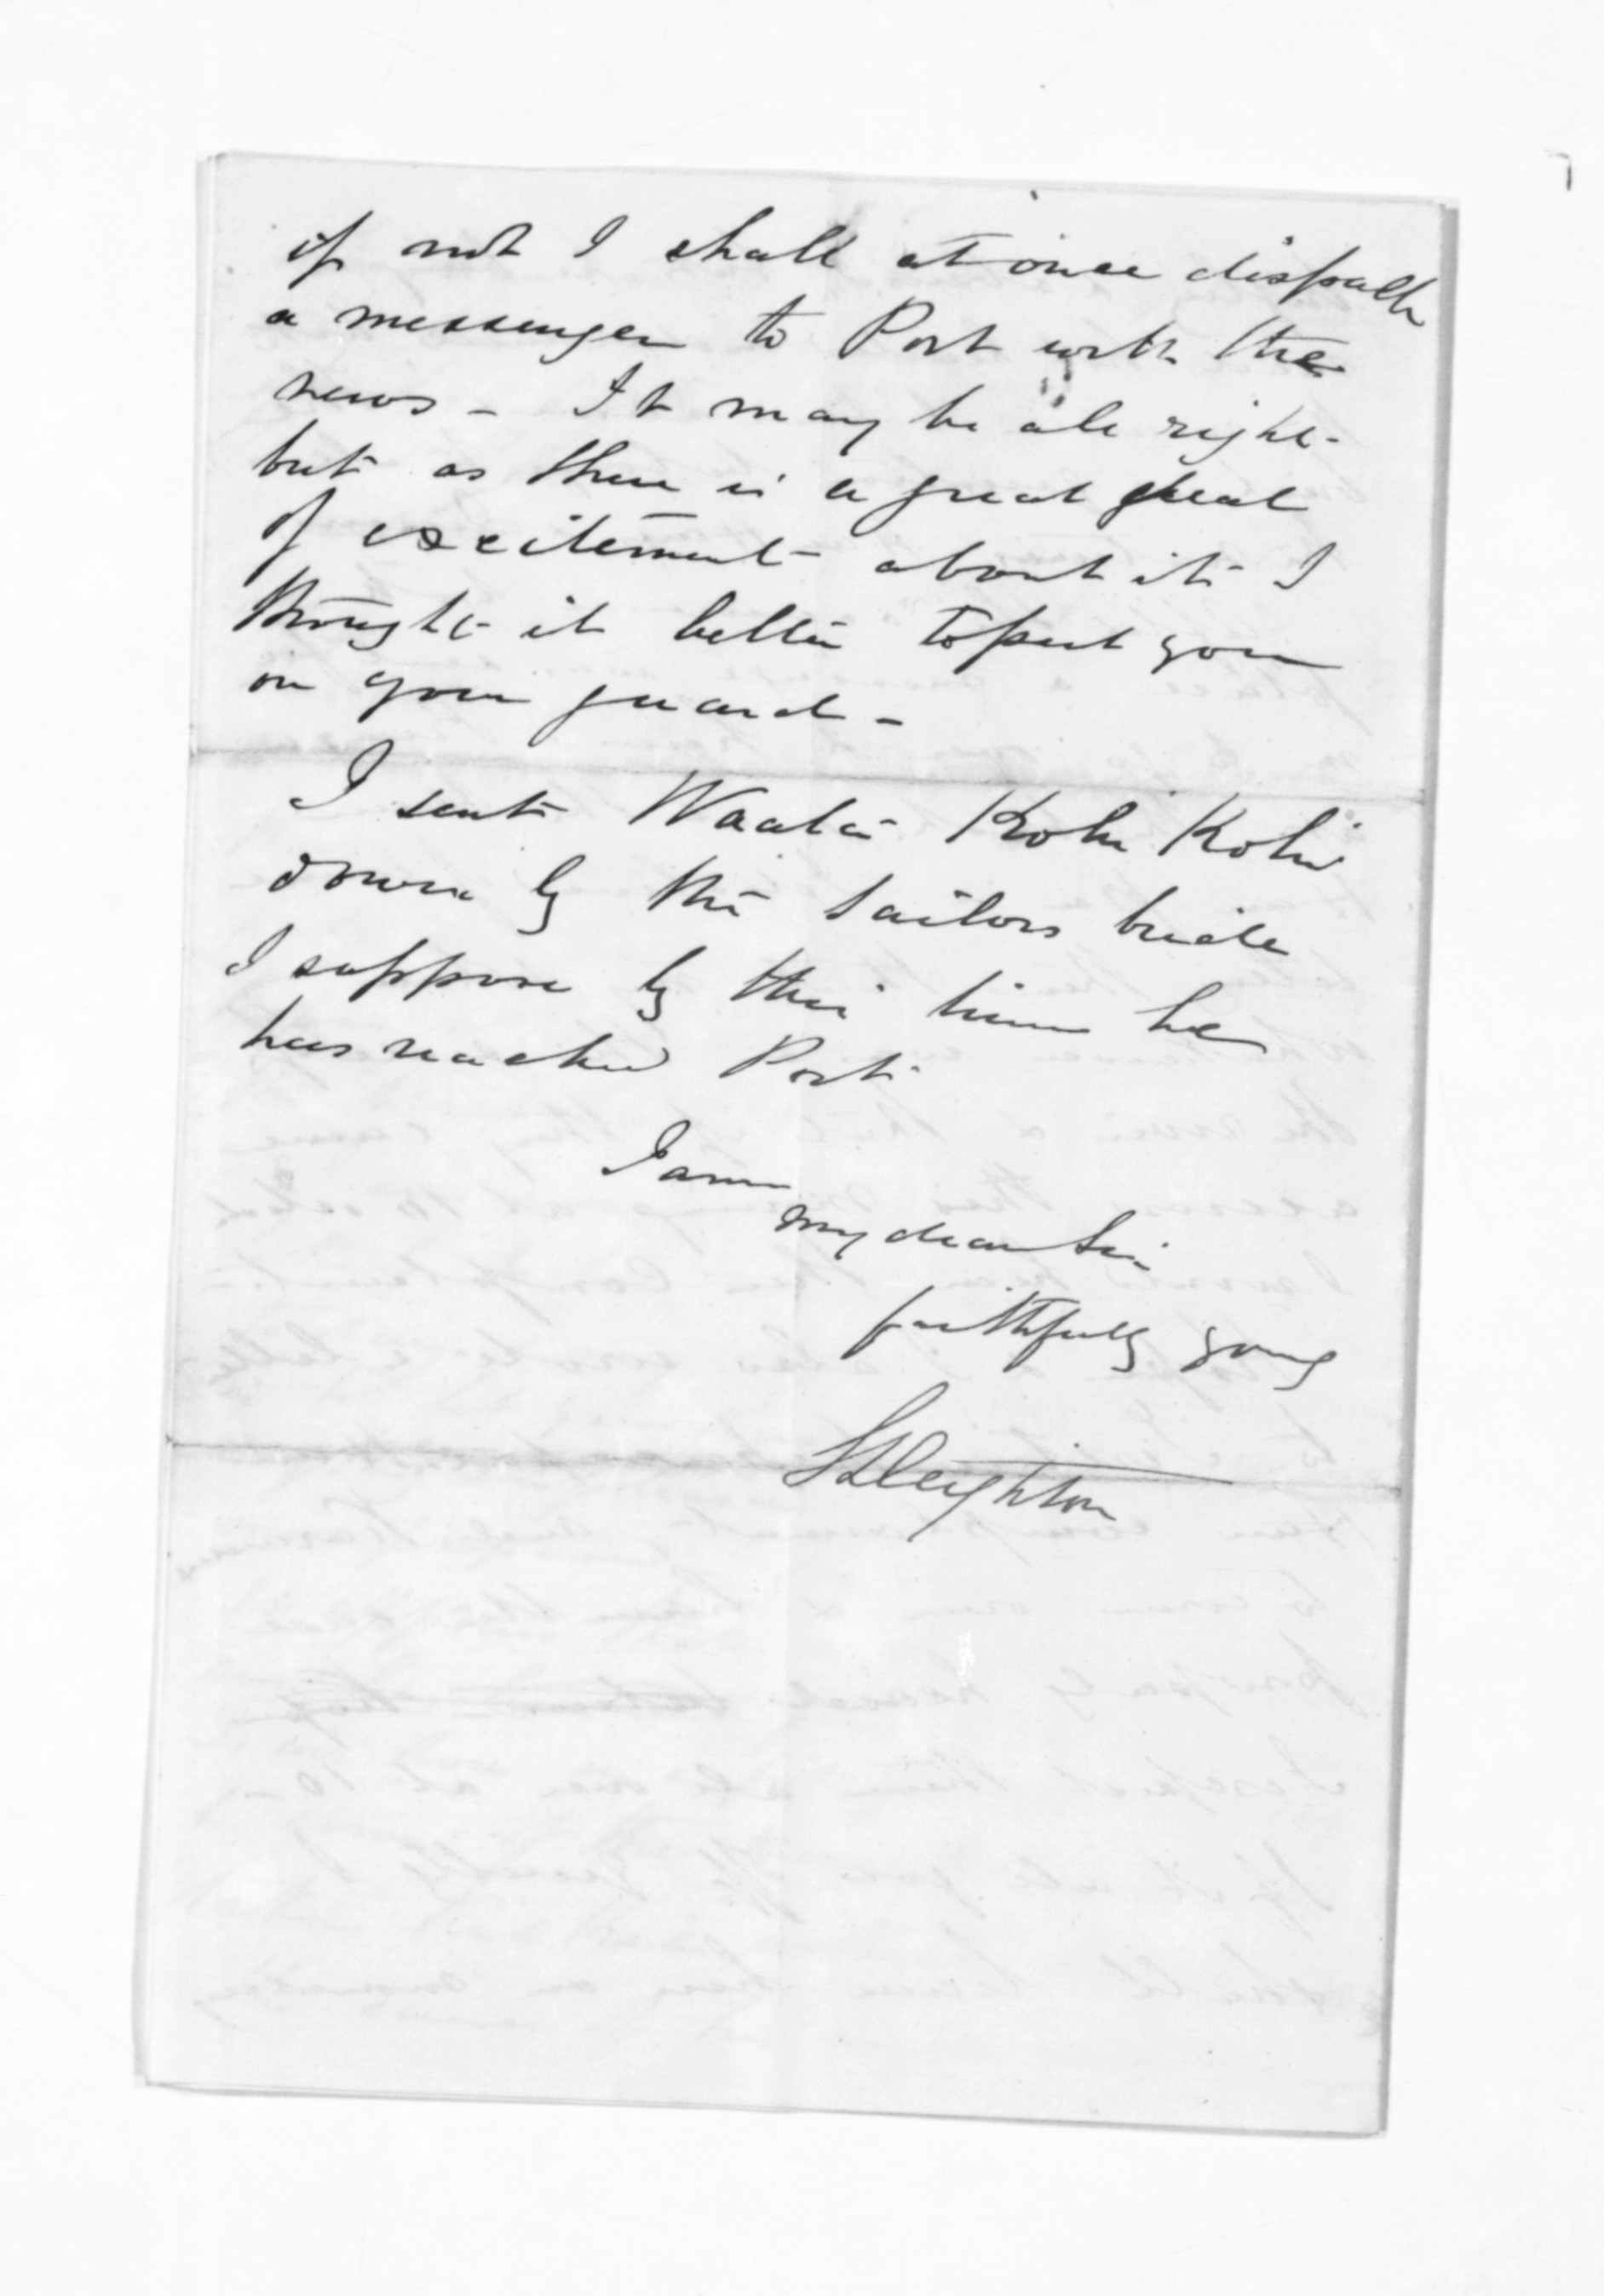 if not I shall at once dispatch
a messenger to Port with the
news - It may be all right -
but as there is a great deal
of excitement about it I
thought it better to put you
on your guard -
I sent Waata Kohi Kohi
down by the Sailors bride
I suppose by this time he
has reached Port
I am
my dear Sir
faithfully yours
S Deighton